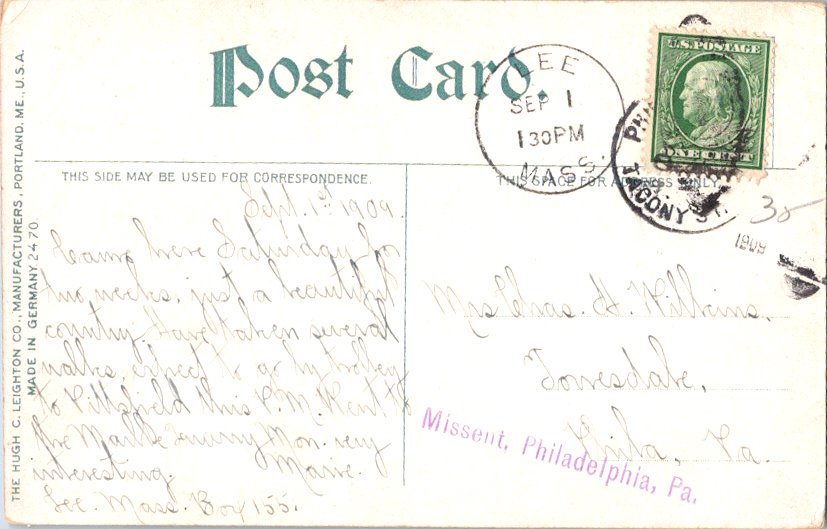 Post Card.
LEE
SEP 1
1 30 PM
MASS.
U.S. POSTAGE
ONE CENT
TACONY ST.
1909
35
THIS SIDE MAY BE USED FOR CORRESPONDENCE.
THIS SPACE FOR ADDRESS ONLY.
THE HUGH C. LEIGHTON CO., MANUFACTURERS, PORTLAND, ME., U.S.A.
MADE IN GERMANY 2470
Sept. 1st 1909.
Came here Saturday for
two weeks, just a beautiful
country. Have taken several
walks, expect to go by trolley
to Pittsfield this P.M. Went to
the Marble Quarry Mon. very
interesting. Marie.
Lee. Mass. Box 155.
Mrs Chas. H. Wilkins.
Torresdale,
Phila, Pa.
Missent, Philadelphia, Pa.